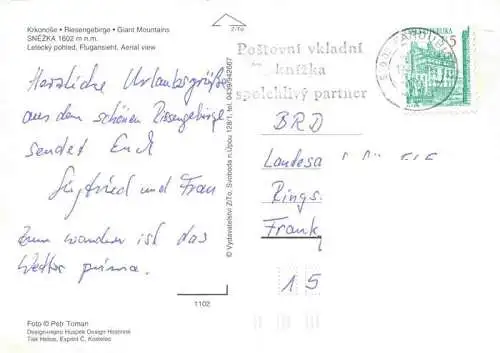 Krkonoše • Riesengebirge • Giant Mountains
SNĚŽKA 1602 m n.m.
Letecký pohled, Flugansicht, Aerial view
Herzliche Urlaubsgrüße
aus dem schönen Riesengebirge
sendet Euch
Siegfried und Frau
Zum wandern ist das
Wetter prima.
Foto © Petr Toman
Design+repro Huspek Design Hostinné
Tisk Helios, Exprint Č. Kostelec
1102
© Vydavatelství ZiTo, Svoboda n.Úpou 128/1, tel. 0439/942667
ZiTo
Poštovní vkladní
knížka
spolehlivý partner
5
BRD
Landesa
Rings.
Frank
15